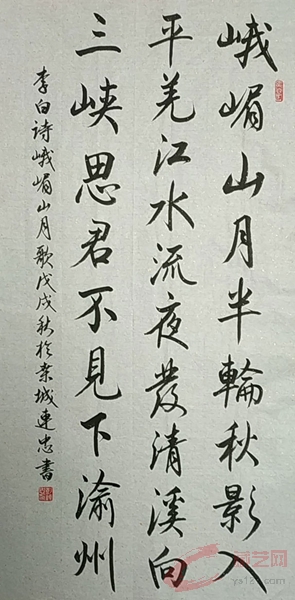 峨嵋山月半輪秋影入
平羌江水流夜發清溪向
三峡思君不見下渝州
李白诗峨嵋山月歌戊戌秋於棗城連忠書